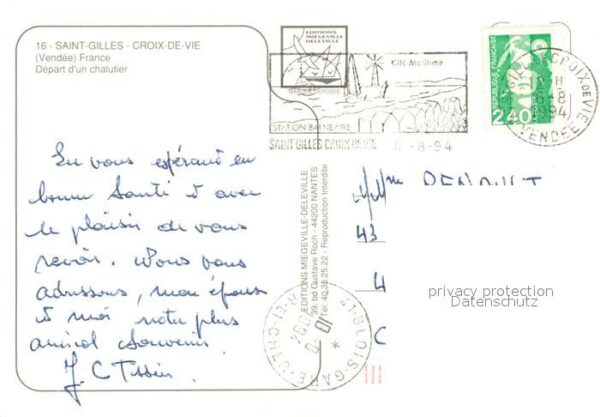 16 - SAINT-GILLES - CROIX-DE-VIE
(Vendée) France
Départ d'un chalutier
EDITIONS
MIEGEVILLE
DELEVILLE
Cité Maritime
STATION BALNEAIRE
SAINT GILLES CROIX DE VIE 6-8-94
REPUBLIQUE FRANCAISE
2,40
CROIX DE VIE
6-8
1994
VENDEE
En vous espérant en
bonne santé et avec
le plaisir de vous
revoir. Nous vous
adressons, mon épouse
et moi notre plus
amical souvenir
J. C Tissin
EDITIONS MIEGEVILLE-DELEVILLE
39, bd Gustave Roch - 44200 NANTES
Tél. 40.35.25.22 - Reproduction Interdite
Mme
43
4
C
privacy protection
Datenschutz
41 BLOIS-GARE
LOIR-ET-CHER